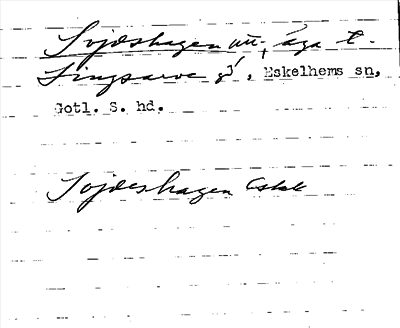 Sojdeshagen åga t.
Lingsarve gd, Eskelhems sn,
Gotl. S. hd.
Sojdeshagen Eskelh